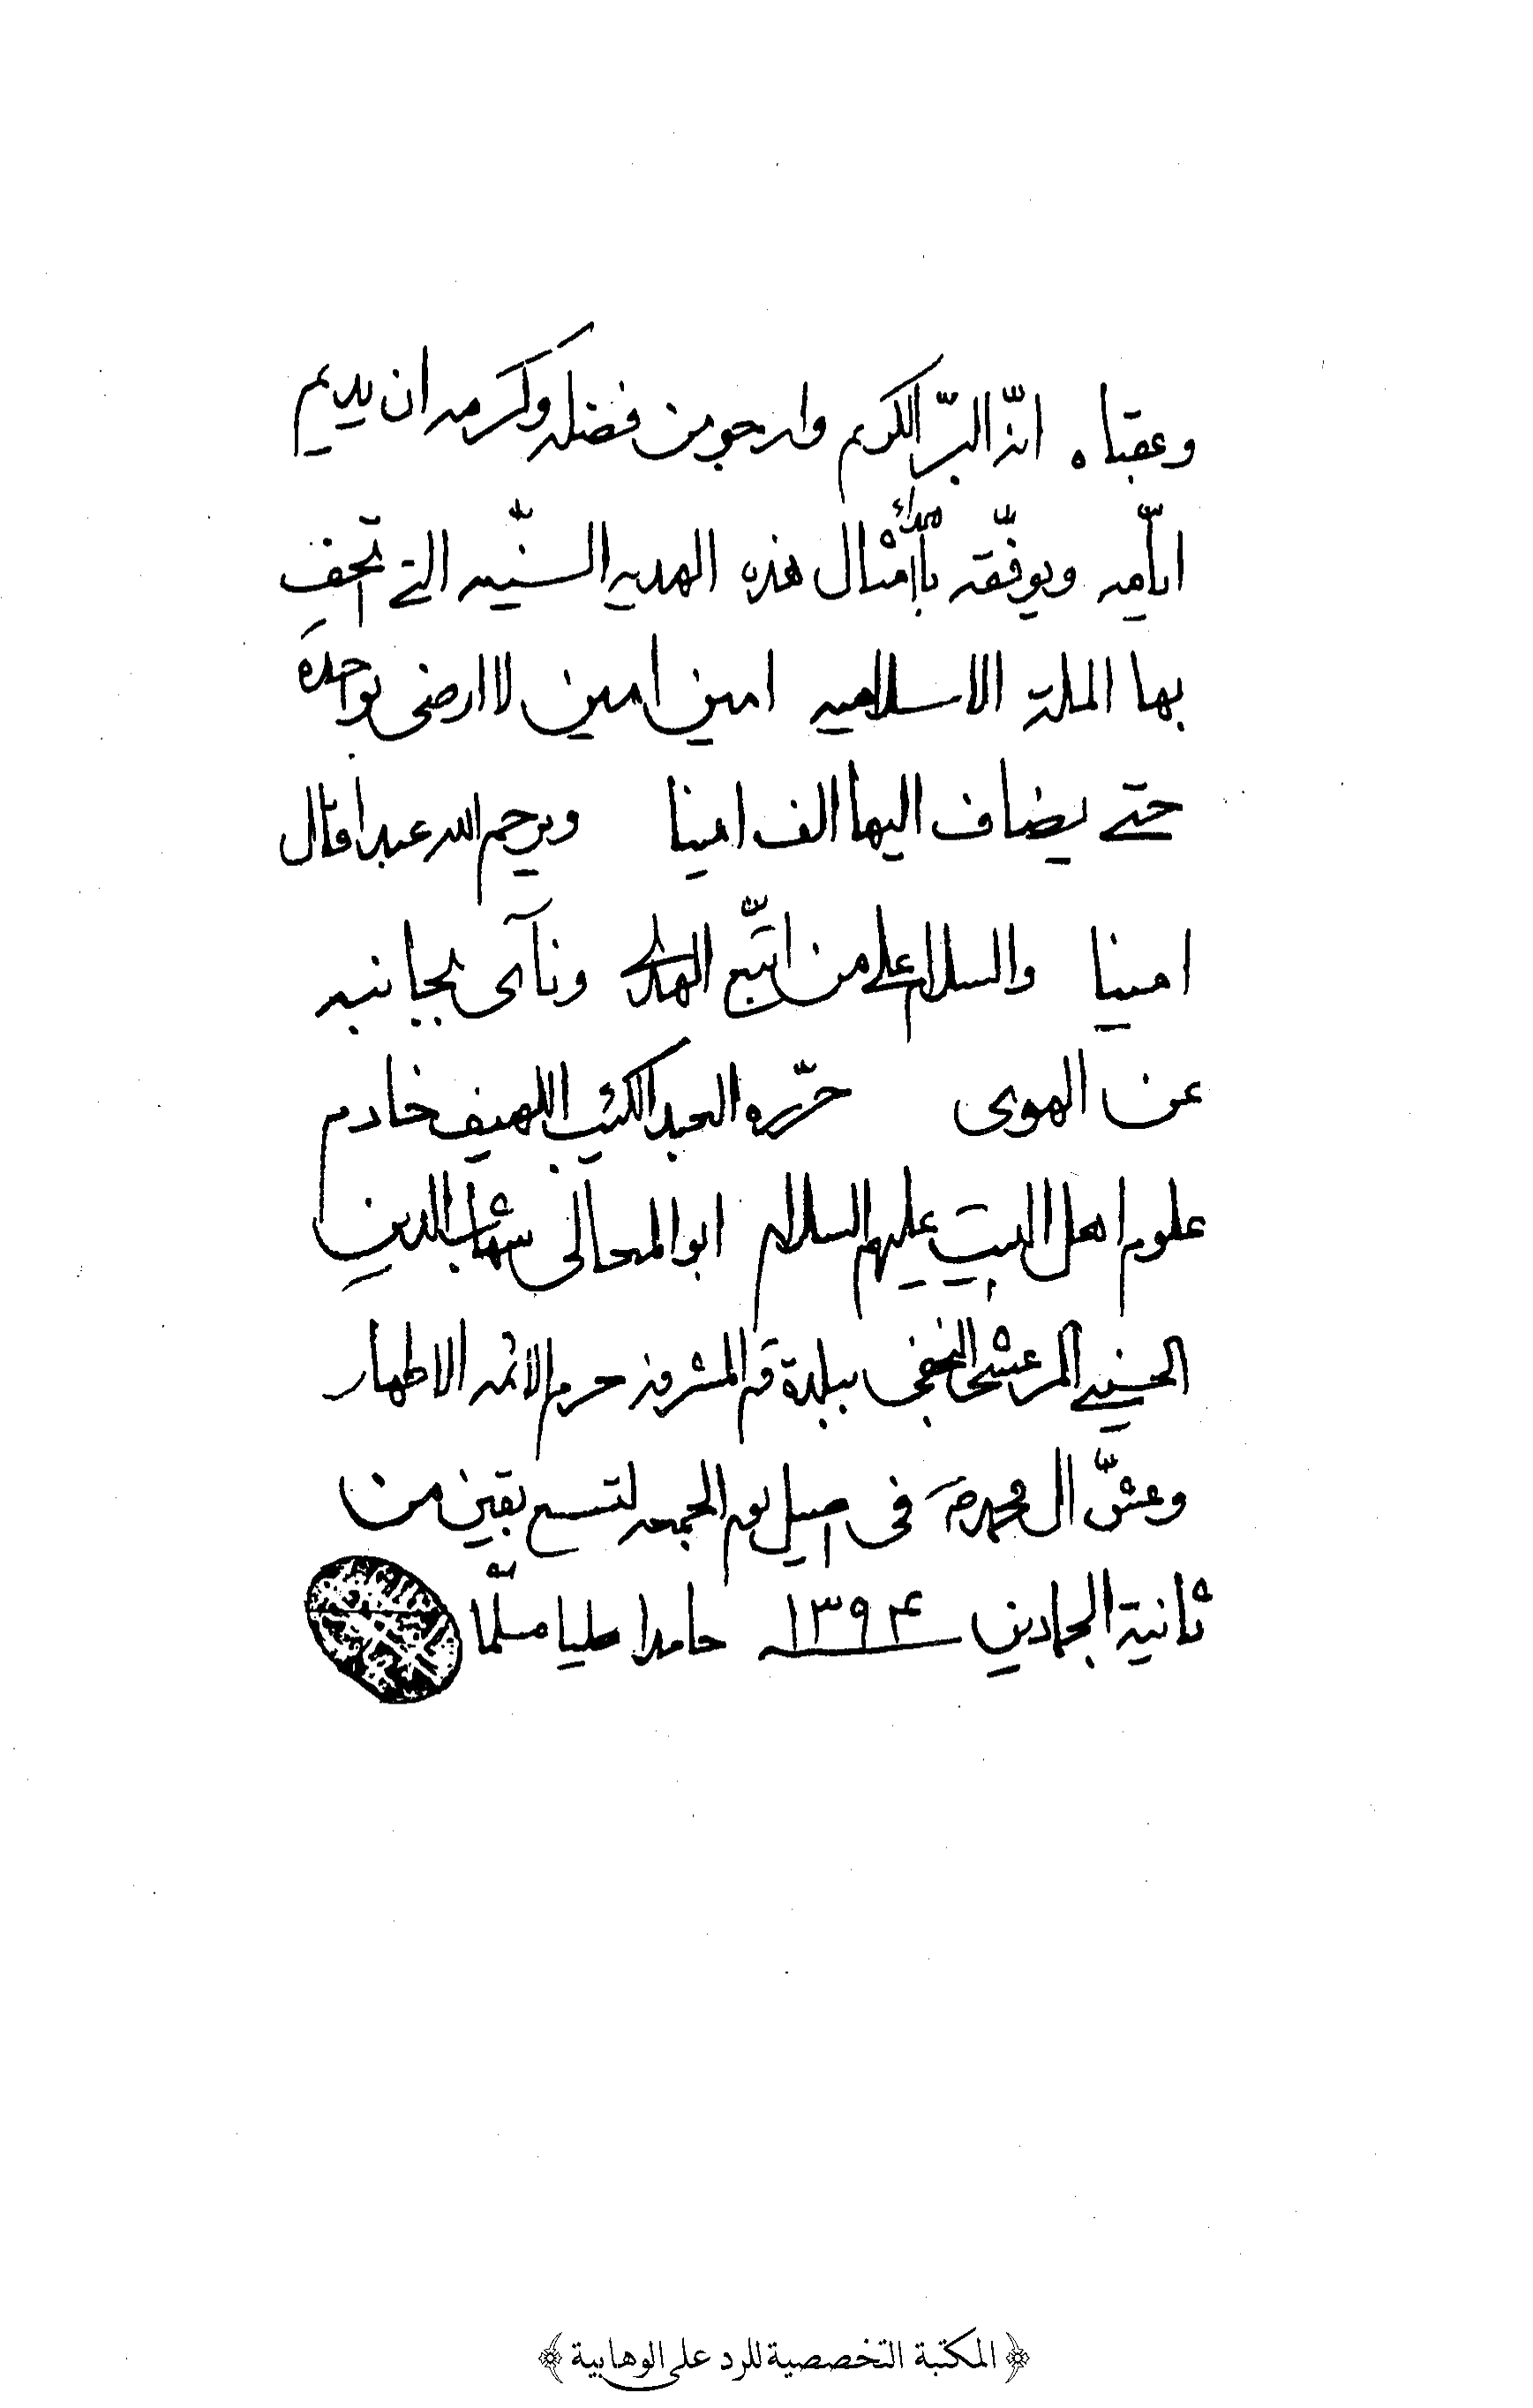 وعقباه انّه البرّ الكريم وارجو من فضله وكرمه ان يديم
ايّامه ويوفّقه بأمثال هذه الهديه السنّيه التي تحف
بها الملة الاسلاميه امين امين لا ارضى بواحدة
حتى يضاف اليها الف امينا ويرحم الله عبدا قال
امينا والسلام على من اتّبع الهدى ونآى بجانبه
عن الهوى حرّره العبد الكئيب اللهيف خادم
علوم اهل البيت عليهم السلام ابو المعالى شهاب الدين
الحسيني المرعشى النجفى ببلدة قم المشرفه حرم الائمه الاطهار
وعشّ ال محمد ص فى اصيل يوم الجمعه لتسع بقين من
ثانية الجمادين ۱۳۹۴ حامدا مصليا مسلّما
﴿ المكتبة التخصصية للرد على الوهابية ﴾